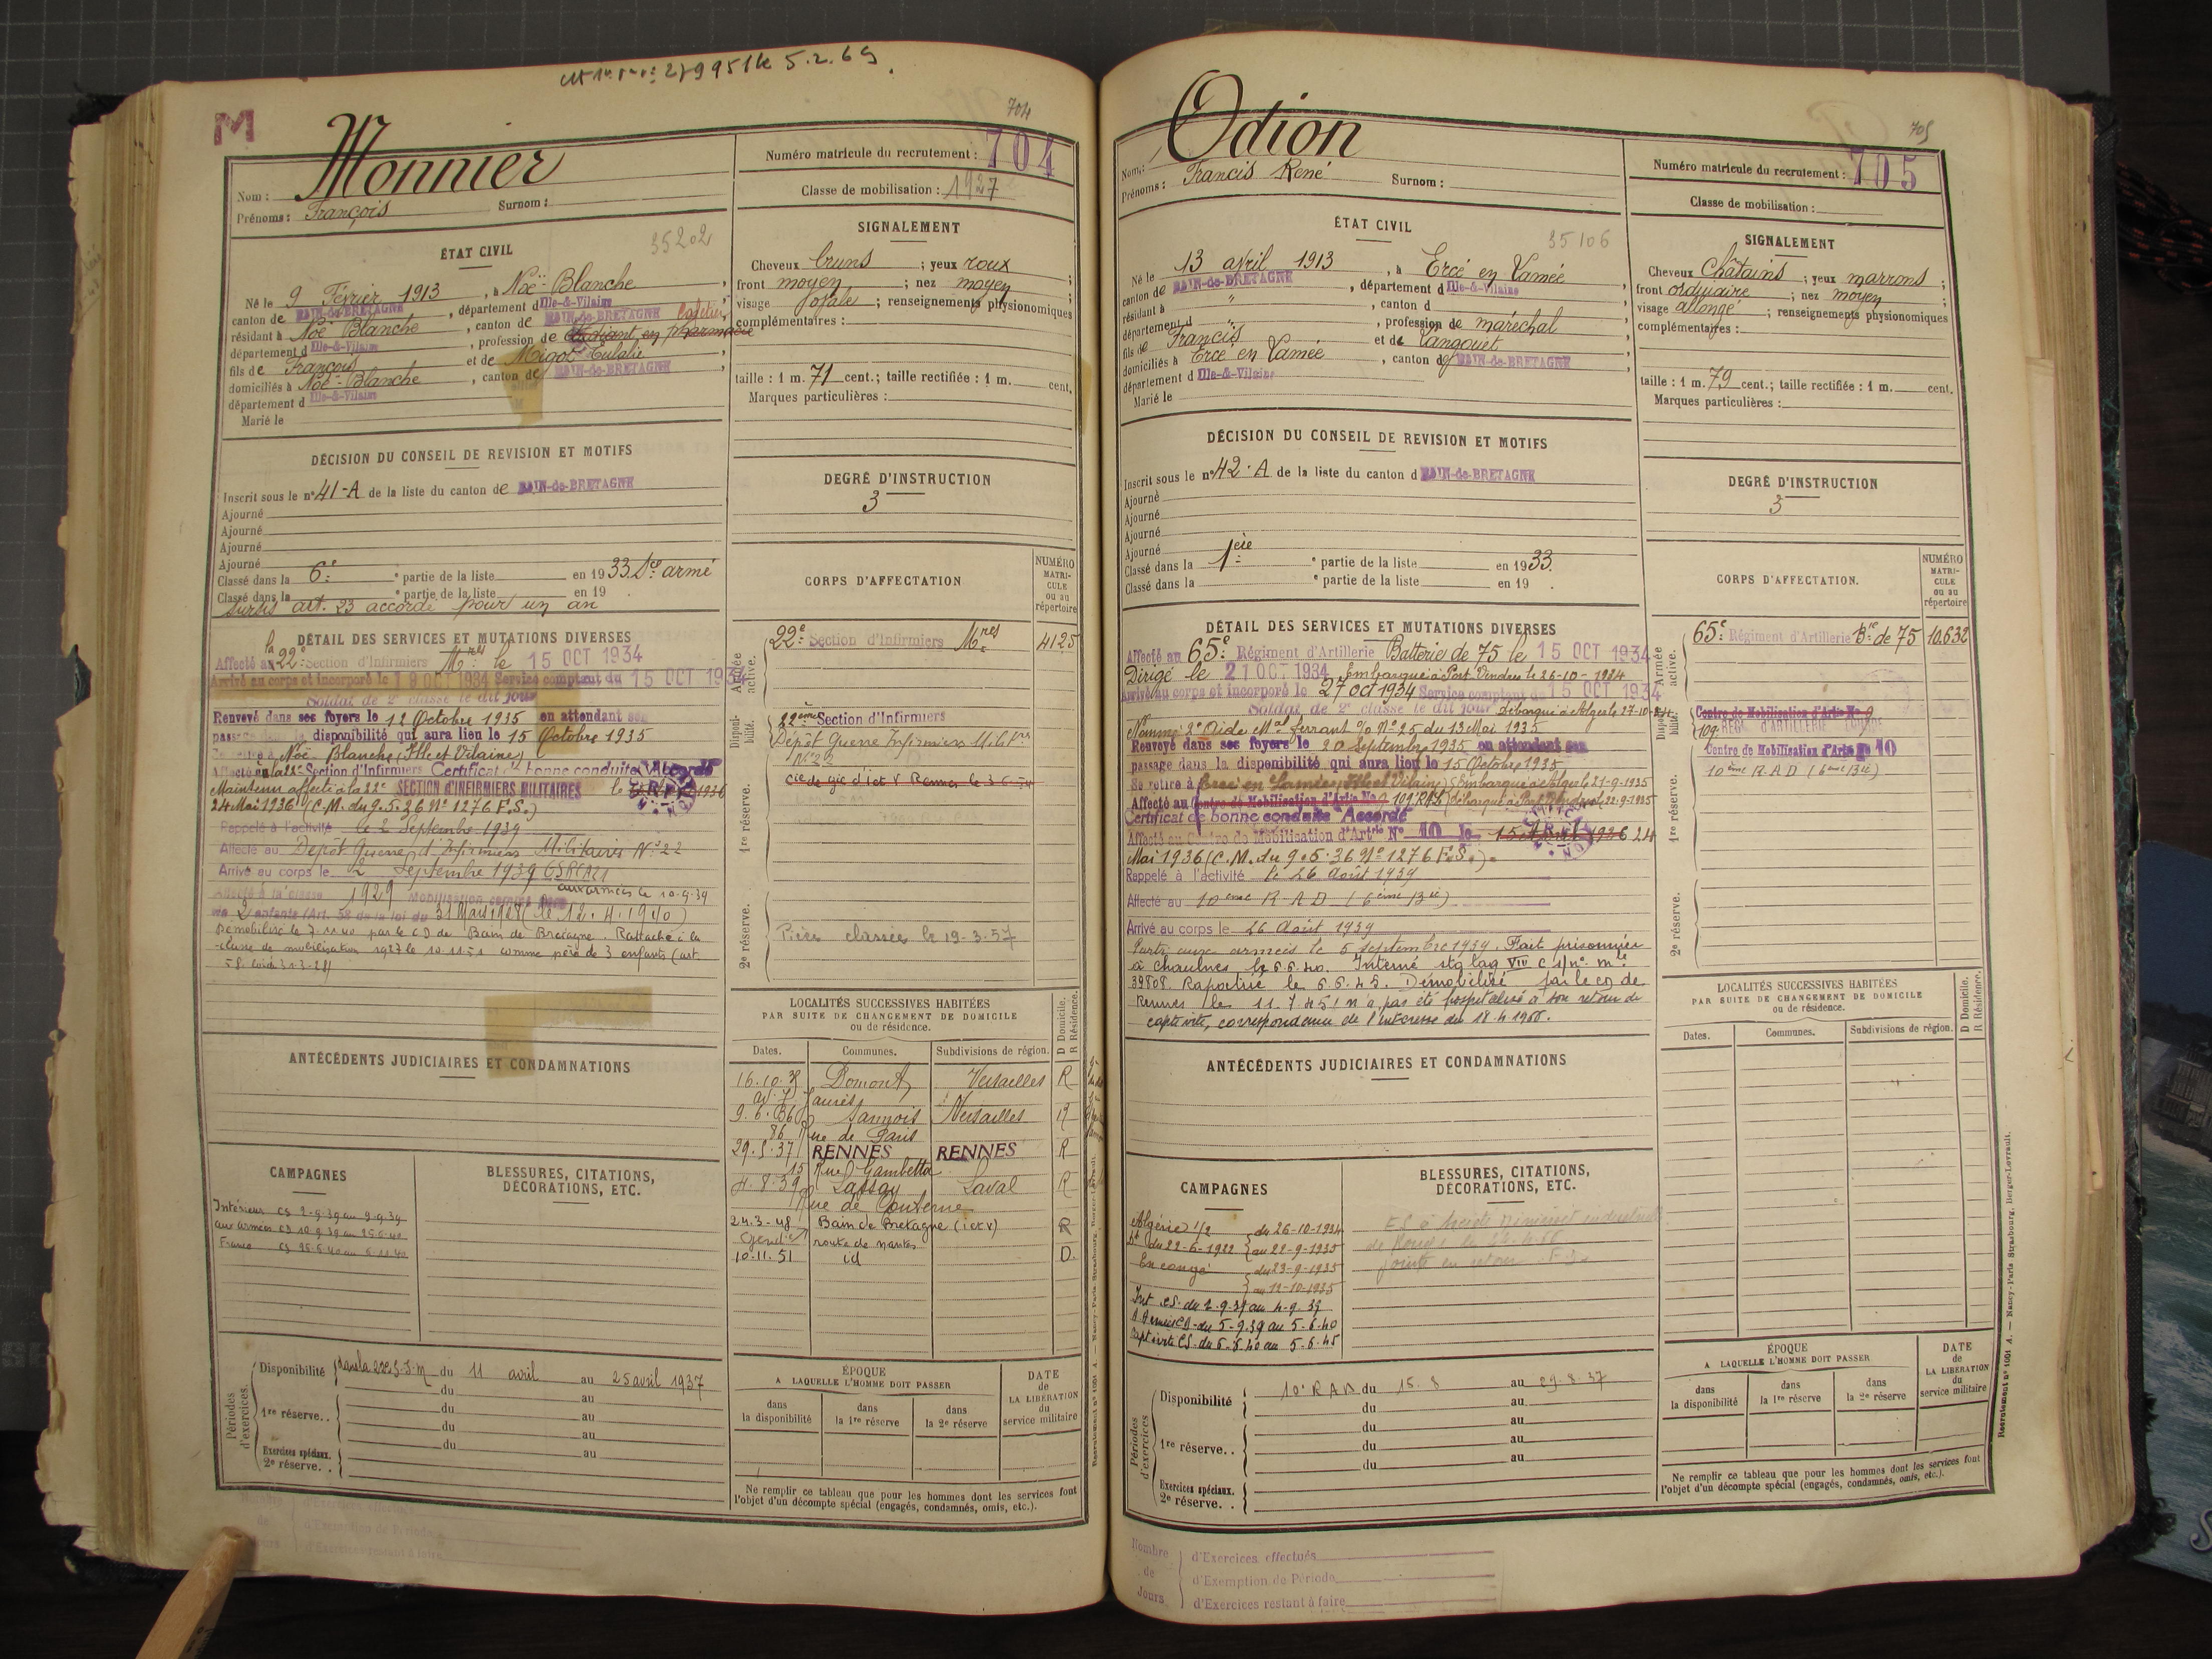 M
704
Monnier
Nom :
Prénoms : François Surnom :
Numéro matricule du recrutement : 704
Classe de mobilisation : 1927
ÉTAT CIVIL
35202
Né le 9 Février 1913, à Noë-Blanche
canton de BAIN-de-BRETAGNE, département d Ille-&-Vilaine
résidant à Noë Blanche, canton de BAIN-de-BRETAGNE
département d Ille-&-Vilaine, profession de étudiant en pharmacie
fils de François et de Migot Eulalie
domiciliés à Noë-Blanche, canton de BAIN-de-BRETAGNE
département d Ille-&-Vilaine
Marié le
SIGNALEMENT
Cheveux bruns ; yeux roux ;
front moyen ; nez moyen ;
visage ; renseignements physionomiques
complémentaires :
taille : 1 m. 71 cent.; taille rectifiée : 1 m. cent.
Marques particulières :
DÉCISION DU CONSEIL DE REVISION ET MOTIFS
Inscrit sous le n° 41-A de la liste du canton de BAIN-de-BRETAGNE
Ajourné
Ajourné
Ajourné
Ajourné
Classé dans la 6e partie de la liste en 1933. armé
Classé dans la e partie de la liste en 19
sursis art. 23 accordé pour un an
DEGRÉ D'INSTRUCTION
3
CORPS D'AFFECTATION
NUMÉRO MATRICULE ou au répertoire
DÉTAIL DES SERVICES ET MUTATIONS DIVERSES
Affecté à la 22e Section d'Infirmiers Mres le 15 OCT 1934
Arrivé au corps et incorporé le 19 OCT 1934 Service comptant du 15 OCT 1934
Soldat de 2e classe le dit jour
Renvoyé dans ses foyers le 12 Octobre 1935 en attendant son
passage dans la disponibilité qui aura lieu le 15 Octobre 1935
Se retire à Noë Blanche (Ille et Vilaine)
Affecté à la 22e Section d'Infirmiers Certificat de bonne conduite Accordé
Maintenu affecté à la 22e SECTION D'INFIRMIERS MILITAIRES le 1936
24 Mai 1936 (C.M. du 9.5.36 N° 1276 F.S.)
Rappelé à l'activité le 2 Septembre 1939
Affecté au Dépôt Guerre d'Infirmiers Militaires N° 22
Arrivé au corps le 2 Septembre 1939
aux armées le 10-9-39
Affecté à la classe 1929 Mobilisation comme père
de 2 enfants (Art. 58 de la loi du 31 Mars 1928 (le 12.4.1940)
Démobilisé le 7-11-40 par le CD de Bain de Bretagne. Rattaché à la
classe de mobilisation 1927 le 10.11.51 comme père de 3 enfants (art.
58 loi du 31-3-28)
Armée active.
22e Section d'Infirmiers Mres 4125
Disponibilité.
22ème Section d'Infirmiers
Dépôt Guerre Infirmiers Militres
N° 22
1re réserve.
2e réserve.
Pièces classées le 19-3-57
ANTÉCÉDENTS JUDICIAIRES ET CONDAMNATIONS
LOCALITÉS SUCCESSIVES HABITÉES
PAR SUITE DE CHANGEMENT DE DOMICILE
ou de résidence.
D Domicile. R Résidence.
Dates. Communes. Subdivisions de région.
16.10.35 Domont Versailles R
Jaurès
9.6.36 Sannois Versailles R
86 Rue de Paris
29.5.37 RENNES RENNES R
15 Rue Gambetta
4.8.39 Lassay Laval R
Rue de Couterne
24.3-48 Bain de Bretagne (i et v) R
route de Nantes
10.11.51 id D.
CAMPAGNES
BLESSURES, CITATIONS,
DÉCORATIONS, ETC.
Intérieur CS 2-9-39 au 9-9-39
aux armées CS 10.9.39 au 25.5.40
France CS
Périodes d'exercices.
Disponibilité dans la 22e S.I.M du 11 avril au 25 avril 1937
du au
1re réserve. . du au
du au
Exercices spéciaux. du au
2e réserve. .
ÉPOQUE
A LAQUELLE L'HOMME DOIT PASSER
dans la disponibilité
dans la 1re réserve
dans la 2e réserve
DATE de LA LIBÉRATION du service militaire
Ne remplir ce tableau que pour les hommes dont les services font
l'objet d'un décompte spécial (engagés, condamnés, omis, etc.).
705
Odion
Nom :
Prénoms : Francis René Surnom :
Numéro matricule du recrutement : 705
Classe de mobilisation :
ÉTAT CIVIL
35106
Né le 13 avril 1913, à Ercé en Lamée
canton de BAIN-de-BRETAGNE, département d Ille-&-Vilaine
résidant à ", canton d
département d ", profession de maréchal
fils de Francis et de Langouët
domiciliés à Ercé en Lamée, canton de BAIN-de-BRETAGNE
département d Ille-&-Vilaine
Marié le
SIGNALEMENT
Cheveux Châtains ; yeux marrons ;
front ordinaire ; nez moyen ;
visage allongé ; renseignements physionomiques
complémentaires :
taille : 1 m. 79 cent.; taille rectifiée : 1 m. cent.
Marques particulières :
DÉCISION DU CONSEIL DE REVISION ET MOTIFS
Inscrit sous le n° 42-A de la liste du canton d BAIN-de-BRETAGNE
Ajourné
Ajourné
Ajourné
Ajourné
Classé dans la 1ère partie de la liste en 1933.
Classé dans la e partie de la liste en 19 .
DEGRÉ D'INSTRUCTION
3
CORPS D'AFFECTATION.
NUMÉRO MATRICULE ou au répertoire
DÉTAIL DES SERVICES ET MUTATIONS DIVERSES
Affecté au 65e Régiment d'Artillerie Batterie de 75 le 15 OCT 1934
Dirigé le 21 OCT 1934 Embarqué à Port Vendres le 26-10-1934
Arrivé au corps et incorporé le 27 OCT 1934 Service comptant du 15 OCT 1934
Soldat de 2e classe le dit jour Débarqué à Alger le 27-10-34
Nommé 2e Aide Mal ferrant O/ N° 25 du 13 Mai 1935
Renvoyé dans ses foyers le 20 Septembre 1935 en attendant son
passage dans la disponibilité qui aura lieu le 15 Octobre 1935
Se retire à Ercé en Lamée (Ille et Vilaine) Embarqué à Alger le 21-9-1935
Affecté au Centre de Mobilisation d'Artie No 9 109 RAL débarqué à Port Vendres le 22-9-1935
Certificat de bonne conduite Accordé
Affecté au Centre de Mobilisation d'Artrie N° 10 le 15 1936 24
Mai 1936 (C.M. du 9.5.36 N° 1276 F.S.).
Rappelé à l'activité le 26 Août 1939
Affecté au 10ème R.A.D (6ème Bie)
Arrivé au corps le 26 Août 1939
Parti aux armées le 5 septembre 1939. Fait prisonnier
à Chaulnes le 6.6.40. Interné stalag VIII C s/n° mle
39808. Rapatrié le 6.6.45. Démobilisé par le CD de
Rennes le 11.7.45; n'a pas été hospitalisé à son retour de
captivité, correspondance de l'intéressé du 18.4.1966.
Armée active.
65e Régiment d'Artillerie Bie de 75 10.632
Disponibilité.
Centre de Mobilisation d'Artie No 9
109 REG. D'ARTILLERIE LOURDE
Centre de Mobilisation d'Artie No 10
10ème R.A.D (6ème Bie)
1re réserve.
2e réserve.
ANTÉCÉDENTS JUDICIAIRES ET CONDAMNATIONS
LOCALITÉS SUCCESSIVES HABITÉES
PAR SUITE DE CHANGEMENT DE DOMICILE
ou de résidence.
D Domicile. R Résidence.
Dates. Communes. Subdivisions de région.
CAMPAGNES
BLESSURES, CITATIONS,
DÉCORATIONS, ETC.
Algérie 1/2 du 26-10-1934
au 22-9-1935
En congé du 23-9-1935
au 14-10-1935
Int CS. du 2.9.39 au 4.9.39
Armées CS du 5-9.39 au 5-6.40
Captivité CS. du 6.6.40 au 5-6.45
Périodes d'exercices
Disponibilité 10e RAD du 15.8 au 29.8.37
du au
du au
1re réserve. . du au
du au
Exercices spéciaux.
2e réserve. .
ÉPOQUE
A LAQUELLE L'HOMME DOIT PASSER
dans la disponibilité
dans la 1re réserve
dans la 2e réserve
DATE de LA LIBÉRATION du service militaire
Ne remplir ce tableau que pour les hommes dont les services font
l'objet d'un décompte spécial (engagés, condamnés, omis, etc.).
Recrutement n° 1001 A. — Nancy-Paris Strasbourg. Berger-Levrault.
Nombre de Jours
d'Exercices effectués
d'Exemption de Période
d'Exercices restant à faire